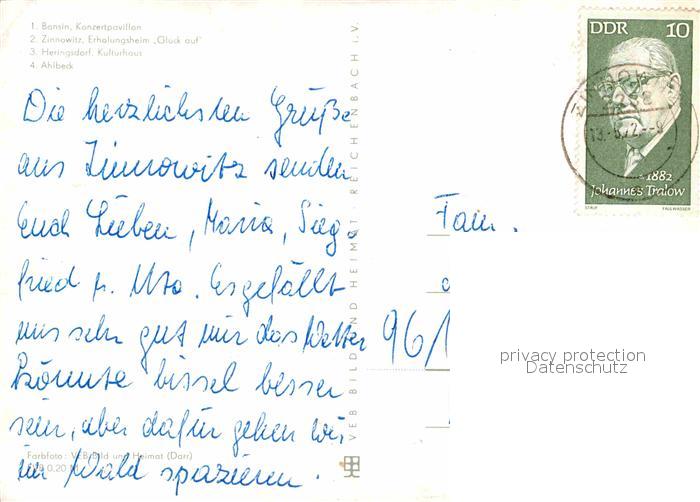 1. Bansin, Konzertpavillon
2. Zinnowitz, Erholungsheim „Glück auf"
3. Heringsdorf, Kulturhaus
4. Ahlbeck
Die herzlichsten Grüße
aus Zinnowitz senden
Euch Lieben, Maria, Sieg-
fried u. Uta. Es gefällt
uns sehr gut nur das Wetter
könnte bissel besser
sein, aber dafür gehen wir
im Wald spazieren.
Farbfoto: VEB Bild und Heimat (Darr)
0,20 M
VEB BILD UND HEIMAT REICHENBACH I. V.
DDR 10
1882
Johannes Tralow
STAUF FALKWASSER
Fam.
96/1
privacy protection
Datenschutz